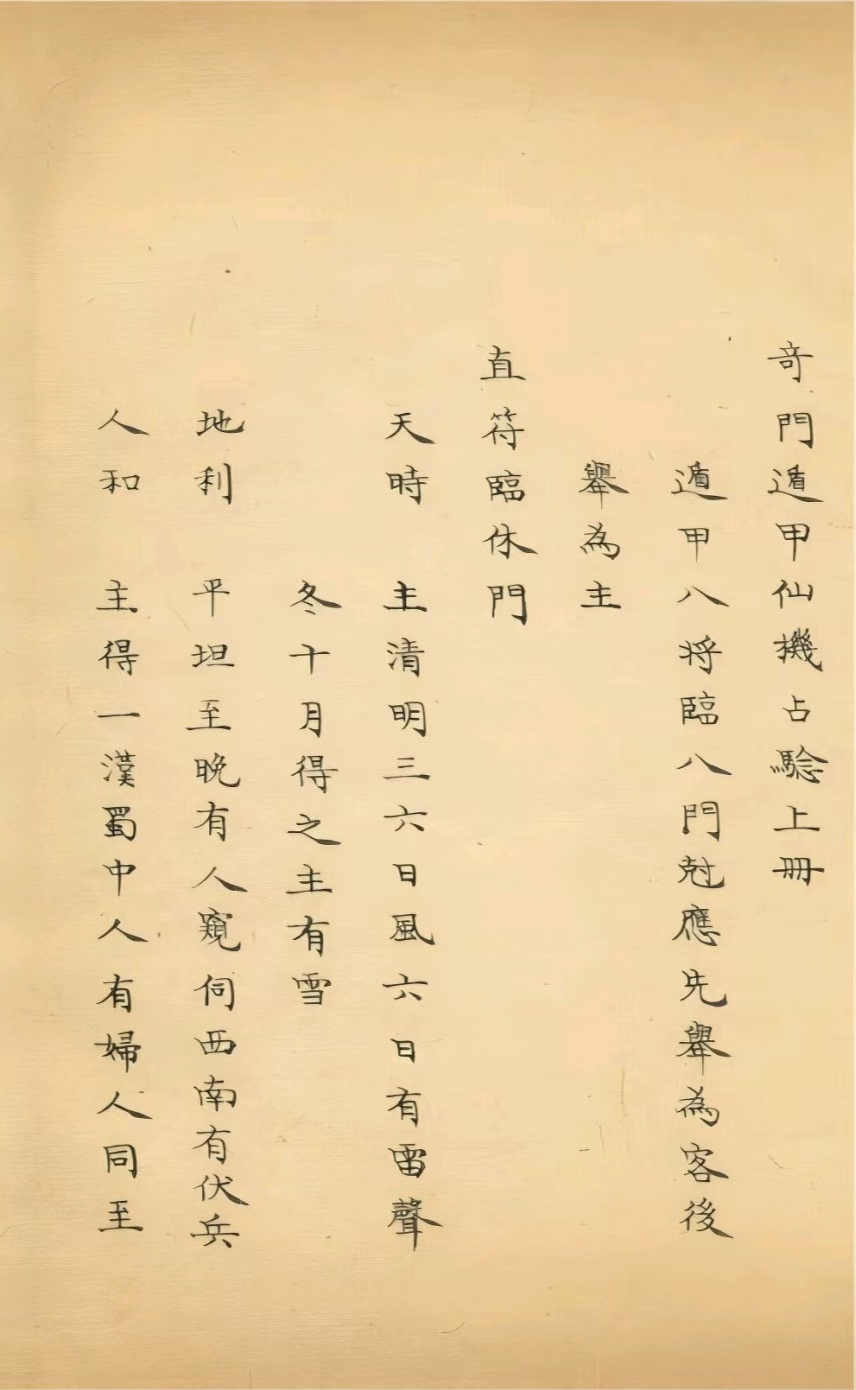 奇門遁甲仙機占驗上冊
遁甲八将臨八門尅應先舉為客後
舉為主
直符臨休門
天時　主清明三六日風六日有雷聲
冬十月得之主有雪
地利　平坦至晚有人窺伺西南有伏兵
人和　主得一漢蜀中人有婦人同至